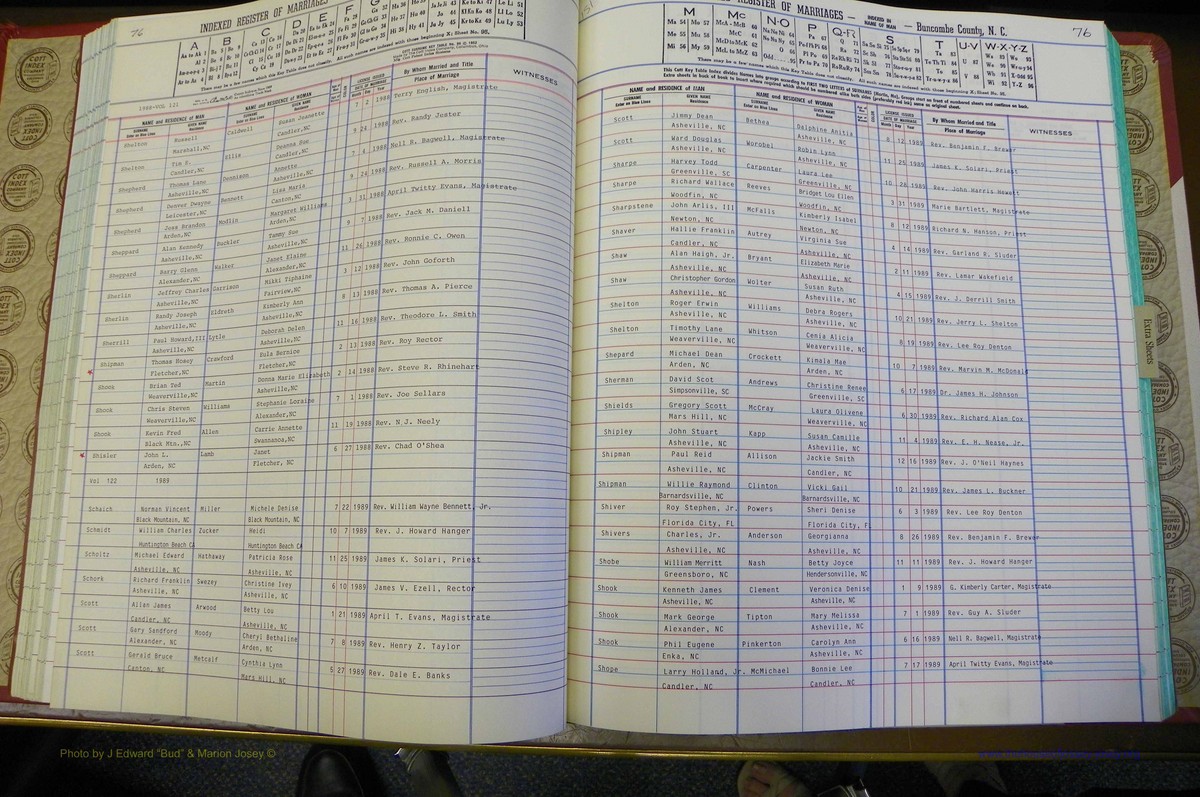 76
INDEXED REGISTER OF MARRIAGES
1988-VOL 121
NAME and RESIDENCE of MAN
NAME and RESIDENCE of WOMAN
By Whom Married and Title
Place of Marriage
WITNESSES
Shelton Russell Caldwell Susan Jeanette 7 2 1988 Terry English, Magistrate
Marshall,NC Candler,NC
Shelton Tim E. Willis Deanna Sue 9 24 1988 Rev. Randy Juster
Candler,NC Candler,NC
Shepherd Thomas Lane Dennison Annette 7 4 1988 Nell R. Bagwell, Magistrate
Asheville,NC Asheville,NC
Shepherd Denver Dwayne Bennett Lisa Marie 9 24 1988 Rev. Russell A. Morris
Leicester,NC Canton,NC
Shepherd Jess Brandon Modlin Margaret Williams 3 31 1988 April Twitty Evans, Magistrate
Arden,NC Arden,NC
Sheppard Alan Kennedy Buckler Tammy Sue 9 7 1988 Rev. Jack M. Daniell
Asheville,NC Asheville,NC
Sheppard Barry Glenn Walker Janet Elaine 11 26 1988 Rev. Ronnie C. Owen
Alexander,NC Alexander,NC
Sherlin Jeffrey Charles Garrison Mikki Tiphaine 3 12 1988 Rev. John Goforth
Asheville,NC Fairview,NC
Sherlin Randy Joseph Eldreth Kimberly Ann 8 13 1988 Rev. Thomas A. Pierce
Asheville,NC Asheville,NC
Sherrill Paul Howard,III Lytle Deborah Delen 11 16 1988 Rev. Theodore L. Smith
Asheville,NC Asheville,NC
Shipman Thomas Hosey Crawford Eula Bernice 2 13 1988 Rev. Roy Rector
Fletcher,NC Fletcher,NC
Shook Brian Ted Martin Donna Marie Elizabeth 2 14 1988 Rev. Steve R. Rhinehart
Weaverville,NC Asheville,NC
Shook Chris Steven Williams Stephanie Loraine 7 1 1988 Rev. Joe Sellars
Weaverville,NC Alexander,NC
Shook Kevin Fred Allen Carrie Annette 11 19 1988 Rev. N.J. Neely
Black Mtn.,NC Swannanoa,NC
Shisler John L. Lamb Janet 6 27 1988 Rev. Chad O'Shea
Arden, NC Fletcher, NC
Vol 122 1989
Schaich Norman Vincent Miller Michele Denise 7 22 1989 Rev. William Wayne Bennett, Jr.
Black Mountain, NC Black Mountain, NC
Schmidt William Charles Zucker Heidi 10 7 1989 Rev. J. Howard Hanger
Huntington Beach CA Huntington Beach CA
Scholtz Michael Edward Hathaway Patricia Rose 11 25 1989 James K. Solari, Priest
Asheville, NC Asheville, NC
Schork Richard Franklin Swezey Christine Ivey 6 10 1989 James V. Ezell, Rector
Asheville, NC Asheville, NC
Scott Allan James Arwood Betty Lou 1 21 1989 April T. Evans, Magistrate
Candler, NC Asheville, NC
Scott Gary Sandford Moody Cheryl Bethaline 7 8 1989 Rev. Henry Z. Taylor
Alexander, NC Arden, NC
Scott Gerald Bruce Metcalf Cynthia Lynn 5 27 1989 Rev. Dale E. Banks
Canton, NC Mars Hill, NC
REGISTER OF MARRIAGES — INDEXED IN NAME OF MAN — Buncombe County, N. C.
76
NAME and RESIDENCE of MAN
NAME and RESIDENCE of WOMAN
By Whom Married and Title
Place of Marriage
WITNESSES
Scott Jimmy Dean Bethea Delphine Anitia 8 12 1989 Rev. Benjamin F. Brewer
Asheville, NC Asheville, NC
Scott Ward Douglas Worobel Robin Lynn 11 25 1989 James K. Solari, Priest
Asheville, NC Asheville, NC
Sharpe Harvey Todd Carpenter Laura Lee 10 28 1989 Rev. John Harris Hewett
Greenville, SC Greenville, NC
Sharpe Richard Wallace Reeves Bridget Lou Ellen 3 31 1989 Marie Bartlett, Magistrate
Woodfin, NC Woodfin, NC
Sharpstene John Arlis, III McFalls Kimberly Isabel 8 12 1989 Richard N. Hanson, Priest
Newton, NC Newton, NC
Shaver Hallie Franklin Autrey Virginia Sue 4 14 1989 Rev. Garland R. Sluder
Candler, NC Asheville, NC
Shaw Alan Haigh, Jr. Bryant Elizabeth Marie 2 11 1989 Rev. Lamar Wakefield
Asheville, NC Asheville, NC
Shaw Christopher Gordon Wolter Susan Ruth 4 15 1989 Rev. J. Derrill Smith
Asheville, NC Asheville, NC
Shelton Roger Erwin Williams Debra Rogers 10 21 1989 Rev. Jerry L. Shelton
Asheville, NC Asheville, NC
Shelton Timothy Lane Whitson Cenia Alicia 8 19 1989 Rev. Lee Roy Denton
Weaverville, NC Weaverville, NC
Shepard Michael Dean Crockett Kimala Mae 10 7 1989 Rev. Marvin M. McDonald
Arden, NC Arden, NC
Sherman David Scot Andrews Christine Renee 6 17 1989 Dr. James H. Johnson
Simpsonville, SC Greenville, SC
Shields Gregory Scott McCray Laura Olivene 6 30 1989 Rev. Richard Alan Cox
Mars Hill, NC Weaverville, NC
Shipley John Stuart Kapp Susan Camille 11 4 1989 Rev. E. H. Nease, Jr.
Asheville, NC Asheville, NC
Shipman Paul Reid Allison Jackie Smith 12 16 1989 Rev. J. O'Neil Haynes
Asheville, NC Candler, NC
Shipman Willie Raymond Clinton Vicki Gail 10 21 1989 Rev. James L. Buckner
Barnardsville, NC Barnardsville, NC
Shiver Roy Stephen, Jr. Powers Sheri Denise 6 3 1989 Rev. Lee Roy Denton
Florida City, FL Florida City, FL
Shivers Charles, Jr. Anderson Georgianna 8 26 1989 Rev. Benjamin F. Brewer
Asheville, NC Asheville, NC
Shobe William Merritt Nash Betty Joyce 11 11 1989 Rev. J. Howard Hanger
Greensboro, NC Hendersonville, NC
Shook Kenneth James Clement Veronica Denise 1 9 1989 G. Kimberly Carter, Magistrate
Asheville, NC Asheville, NC
Shook Mark George Tipton Mary Melissa 7 1 1989 Rev. Guy A. Sluder
Alexander, NC Asheville, NC
Shook Phil Eugene Pinkerton Carolyn Ann 6 16 1989 Nell R. Bagwell, Magistrate
Enka, NC Asheville, NC
Shope Larry Holland, Jr. McMichael Bonnie Lee 7 17 1989 April Twitty Evans, Magistrate
Candler, NC Candler, NC
Extra Sheets
Photo by J Edward "Bud" & Marion Josey ©